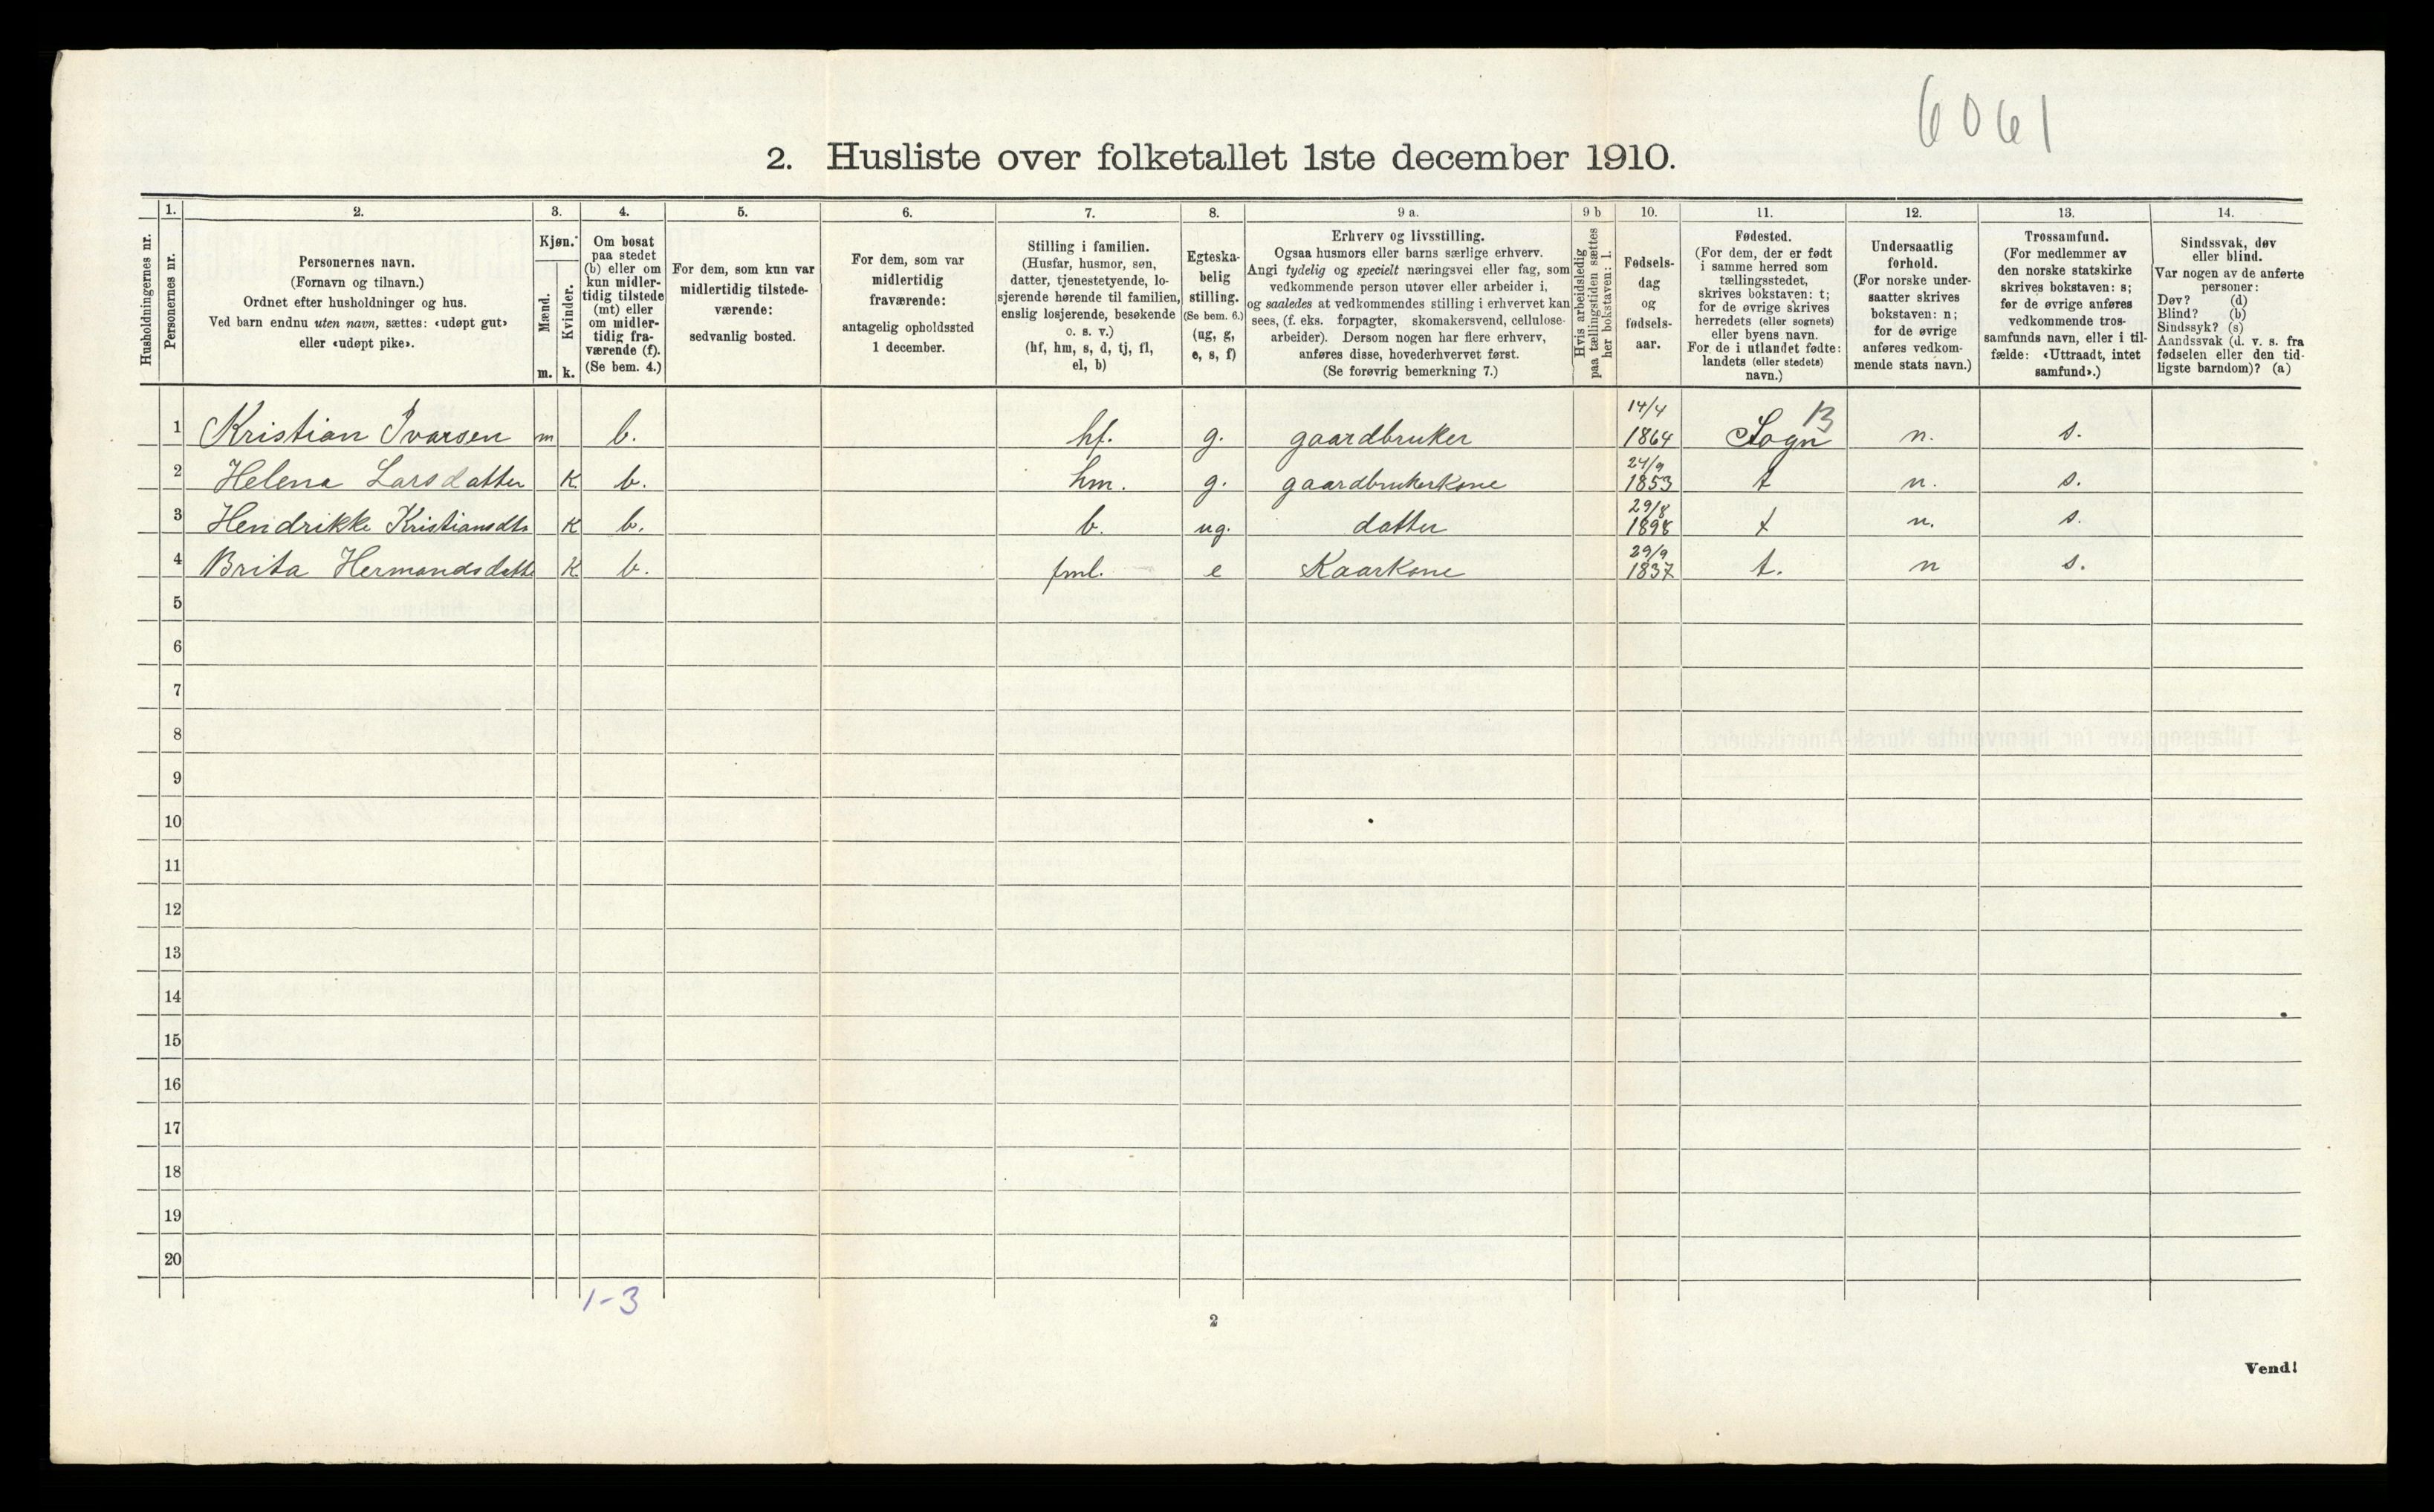 6061
2. Husliste over folketallet 1ste december 1910.
Husholdningernes nr.
1.
Personernes nr.
2.
Personernes navn.
(Fornavn og tilnavn.)
Ordnet efter husholdninger og hus.
Ved barn endnu uten navn, sættes: «udøpt gut»
eller «udøpt pike».
3.
Kjøn.
Mænd.
Kvinder.
m. k.
4.
Om bosat
paa stedet
(b) eller om
kun midler-
tidig tilstede
(mt) eller
om midler-
tidig fra-
værende (f).
(Se bem. 4.)
5.
For dem, som kun var
midlertidig tilstede-
værende:
sedvanlig bosted.
6.
For dem, som var
midlertidig
fraværende:
antagelig opholdssted
1 december.
7.
Stilling i familien.
(Husfar, husmor, søn,
datter, tjenestetyende, lo-
sjerende hørende til familien,
enslig losjerende, besøkende
o. s. v.)
(hf, hm, s, d, tj, fl,
el, b)
8.
Egteska-
belig
stilling.
(Se bem. 6.)
(ug, g,
e, s, f)
9 a.
Erhverv og livsstilling.
Ogsaa husmors eller barns særlige erhverv.
Angi tydelig og specielt næringsvei eller fag, som
vedkommende person utøver eller arbeider i,
og saaledes at vedkommendes stilling i erhvervet kan
sees, (f. eks. forpagter, skomakersvend, cellulose-
arbeider). Dersom nogen har flere erhverv,
anføres disse, hovederhvervet først.
(Se forøvrig bemerkning 7.)
9 b
Hvis arbeidsledig
paa tællingstiden sættes
her bokstaven: l.
10.
Fødsels-
dag
og
fødsels-
aar.
11.
Fødested.
(For dem, der er født
i samme herred som
tællingsstedet,
skrives bokstaven: t;
for de øvrige skrives
herredets (eller sognets)
eller byens navn.
For de i utlandet fødte:
landets (eller stedets)
navn.)
12.
Undersaatlig
forhold.
(For norske under-
saatter skrives
bokstaven: n;
for de øvrige
anføres vedkom-
mende stats navn.)
13.
Trossamfund.
(For medlemmer av
den norske statskirke
skrives bokstaven: s;
for de øvrige anføres
vedkommende tros-
samfunds navn, eller i til-
fælde: «Uttraadt, intet
samfund».)
14.
Sindssvak, døv
eller blind.
Var nogen av de anførte
personer:
Døv? (d)
Blind? (b)
Sindssyk? (s)
Aandssvak (d. v. s. fra
fødselen eller den tid-
ligste barndom)? (a)
1 Kristian Ivarsen m b. hf. g. gaardbruker 14/4 1864 Sogn 13 n. s.
2 Helena Larsdatter k b. hm. g. gaardbrukerkone 24/9 1853 t n. s.
3 Hendrikke Kristiansdtr k b. b. ug. datter 29/8 1898 t n. s.
4 Brita Hermandsdatte k b. fml. e Kaarkone 29/9 1837 t. n s.
5
6
7
8
9
10
11
12
13
14
15
16
17
18
19
20
1-3
2
Vend!